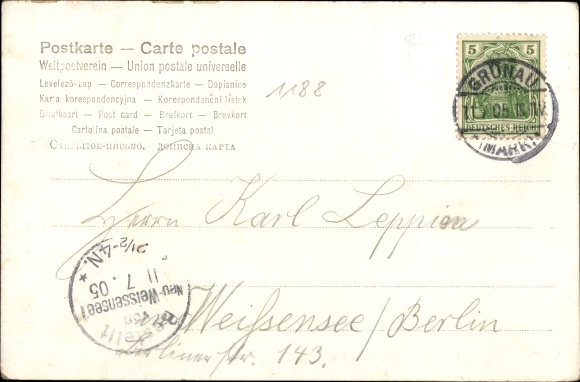 Postkarte — Carte postale
Weltpostverein — Union postale universelle
Levelező-Lap — Correspondenzkarte — Dopisnice
Karta korespondencyjna — Korespondenční listek
Briefkaart — Post card — Brefkort — Brevkort
Cartolina postale — Tarjeta postal
Открытое письмо. Дописна карта
1188
5 5
DEUTSCHES REICH
GRÜNAU
11.7.05.
(MARK)
Herrn Karl Leppien
Weißensee / Berlin
Berlinerstr. 143.
Bestellt
von
Neu-Weissensee
11 7. 05
2½-4N.